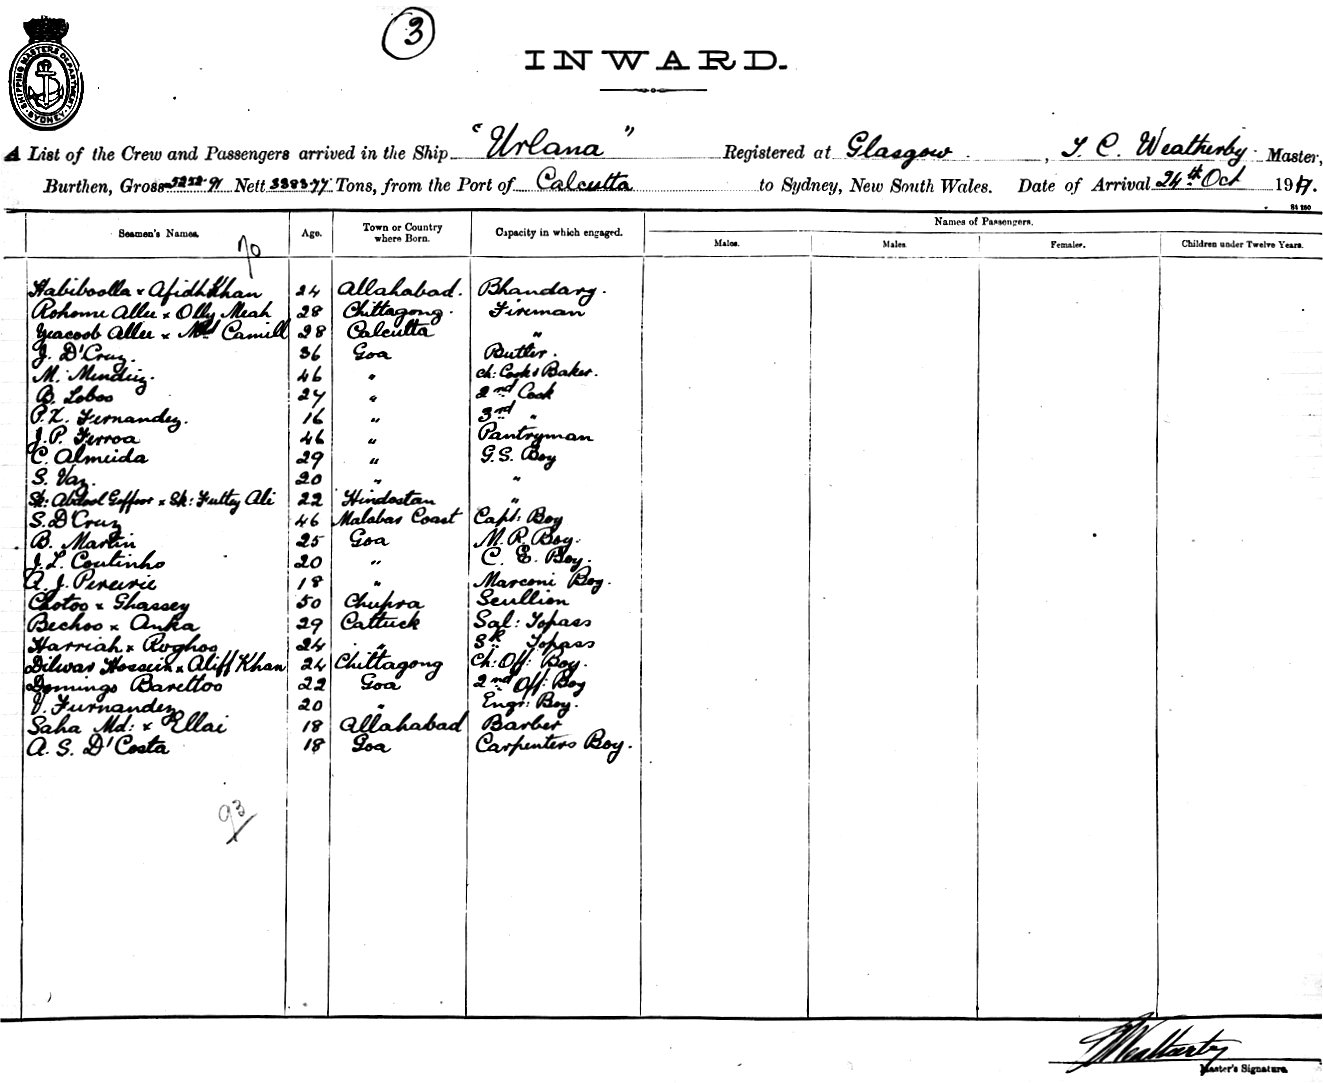 3
INWARD.
SHIPPING MASTERS DEPARTMENT SYDNEY
A List of the Crew and Passengers arrived in the Ship "Urlana" Registered at Glasgow, T. C. Weatherby Master,
Burthen, Gross 5252.91 Nett 3383.77 Tons, from the Port of Calcutta to Sydney, New South Wales. Date of Arrival 24th Oct 1917.
Seamen's Names. Age. Town or Country where Born. Capacity in which engaged. Names of Passengers.
Males. Males. Females. Children under Twelve Years.
70
Habiboolla x Afidh Khan 24 Allahabad. Bhandary.
Rohome Allee x Olly Meah 28 Chittagong. Fireman
Yeacoob Allee x Md Camill 28 Calcutta "
J. D'Cruz. 36 Goa Butler.
M. Mindiz. 46 " Ch: Cook & Baker.
B. Lobos 27 " 2nd Cook
P. X. Fernandez. 16 " 3rd "
J. P. Ferroa 46 " Pantryman
C. Almeida 29 " G.S. Boy
S. Vaz. 20 " "
Sk: Abdool Goffoor x Sk: Futtey Ali 22 Hindostan "
S. D'Cruz 46 Malabar Coast Capt: Boy
B. Martin 25 Goa M. R. Boy.
J. L. Coutinho 20 " C. E. Boy.
A. J. Pereirie 18 " Marconi Boy.
Chotoo x Ghassey 50 Chupra Scullion
Bechoo x Anka 29 Cattuck Sal: Topass
Harriah x Roghoo 24 " Sk Topass
Dilwar Hossein x Aliff Khan 24 Chittagong Ch: Off: Boy.
Domingo Barettoo 22 Goa 2nd Off: Boy
V. Furnandez 20 " Engr: Boy.
Saha Md: x Ellai 18 Allahabad Barber
A. S. D'Costa 18 Goa Carpenters Boy.
93
Weatherby
Master's Signature.